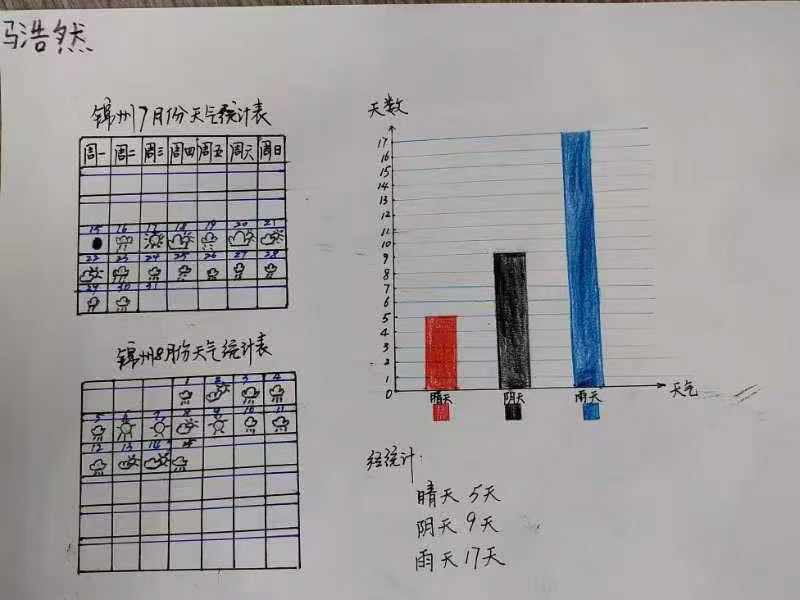 冯浩然
锦州7月份天气统计表
周一 周二 周三 周四 周五 周六 周日
15 16 17 18 19 20 21
22 23 24 25 26 27 28
29 30 31
锦州8月份天气统计表
1 2 3 4
5 6 7 8 9 10 11
12 13 14 15
天数
17
16
15
14
13
12
11
10
9
8
7
6
5
4
3
2
1
0
晴天 阴天 雨天 天气
经统计:
晴天 5天
阴天 9天
雨天 17天